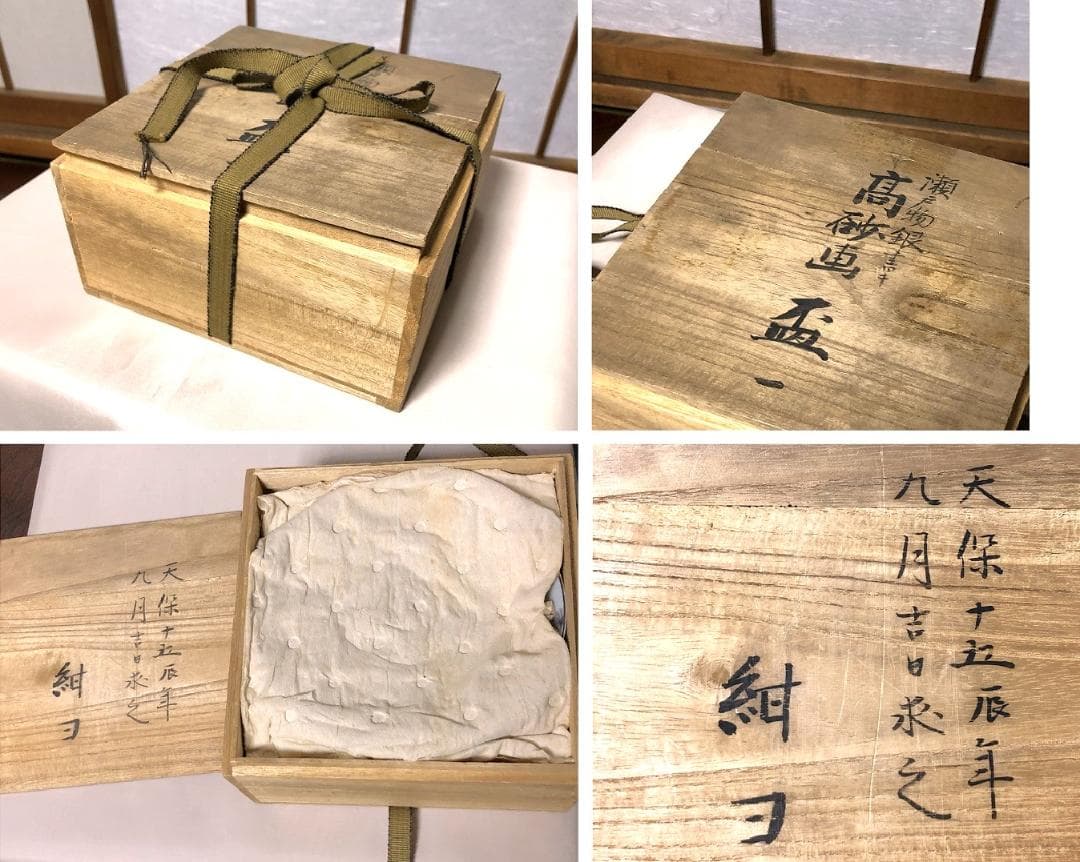 瀬戸物銀
高砂画盃一
天保十五辰年
九月吉日求之
紺ヨ
天保十五辰年
九月吉日求之
紺ヨ